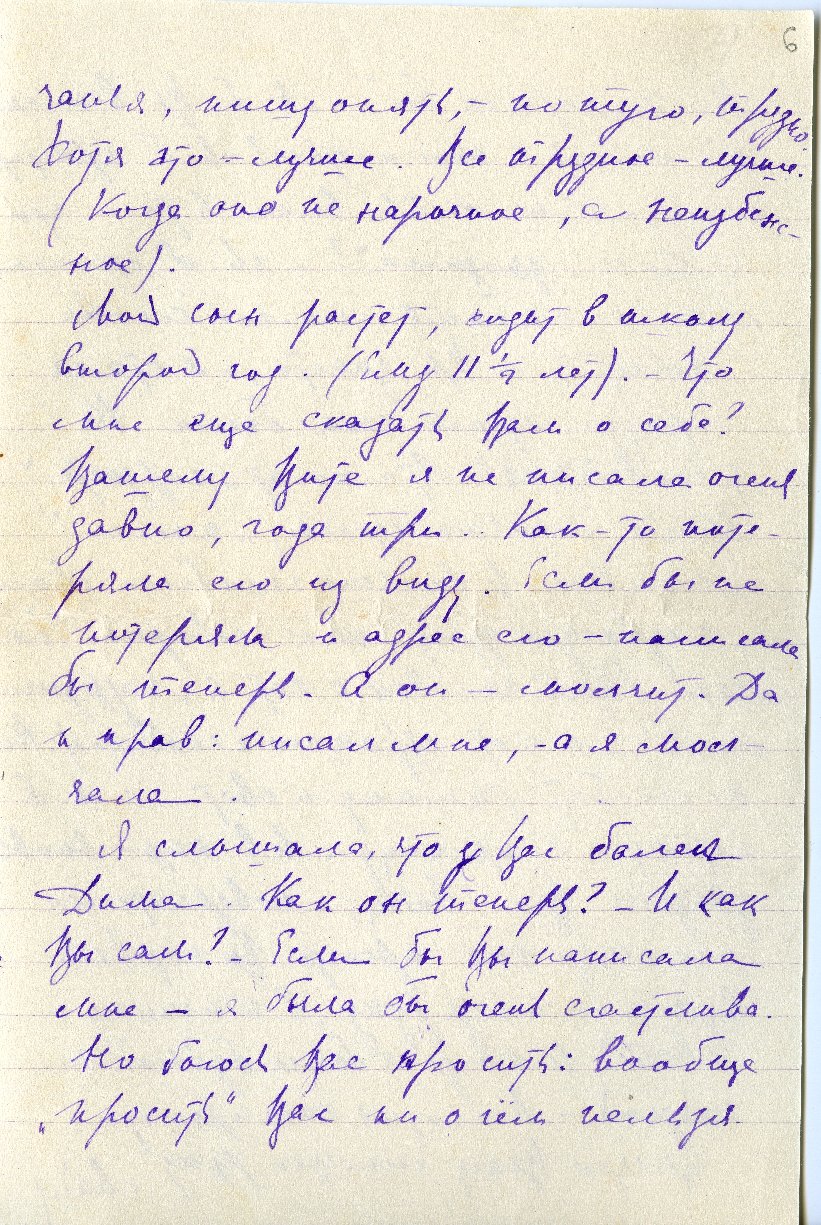 6
чания, пишу опять, - но туго, трудно.
Хотя это - лучше. Все трудное - лучше.
(Когда оно не нарочное, а неизбеж-
ное).
Мой сын растет, ходит в школу
второй год. (Ему 11 ½ лет). - Что
мне еще сказать Вам о себе?
Вашему Вите я не писала очень
давно, года три. Как-то поте-
ряла его из виду. Если бы не
потеряла и адрес его - написала
бы теперь. А он - молчит. Да
и прав: писал мне, - а я мол-
чала.
Я слышала, что у Вас болен
Дима. Как он теперь? - И как
Вы сами? - Если бы Вы написали
мне - я была бы очень счастлива.
Но боюсь Вас просить: вообще
„просить" Вас ни о чём нельзя.